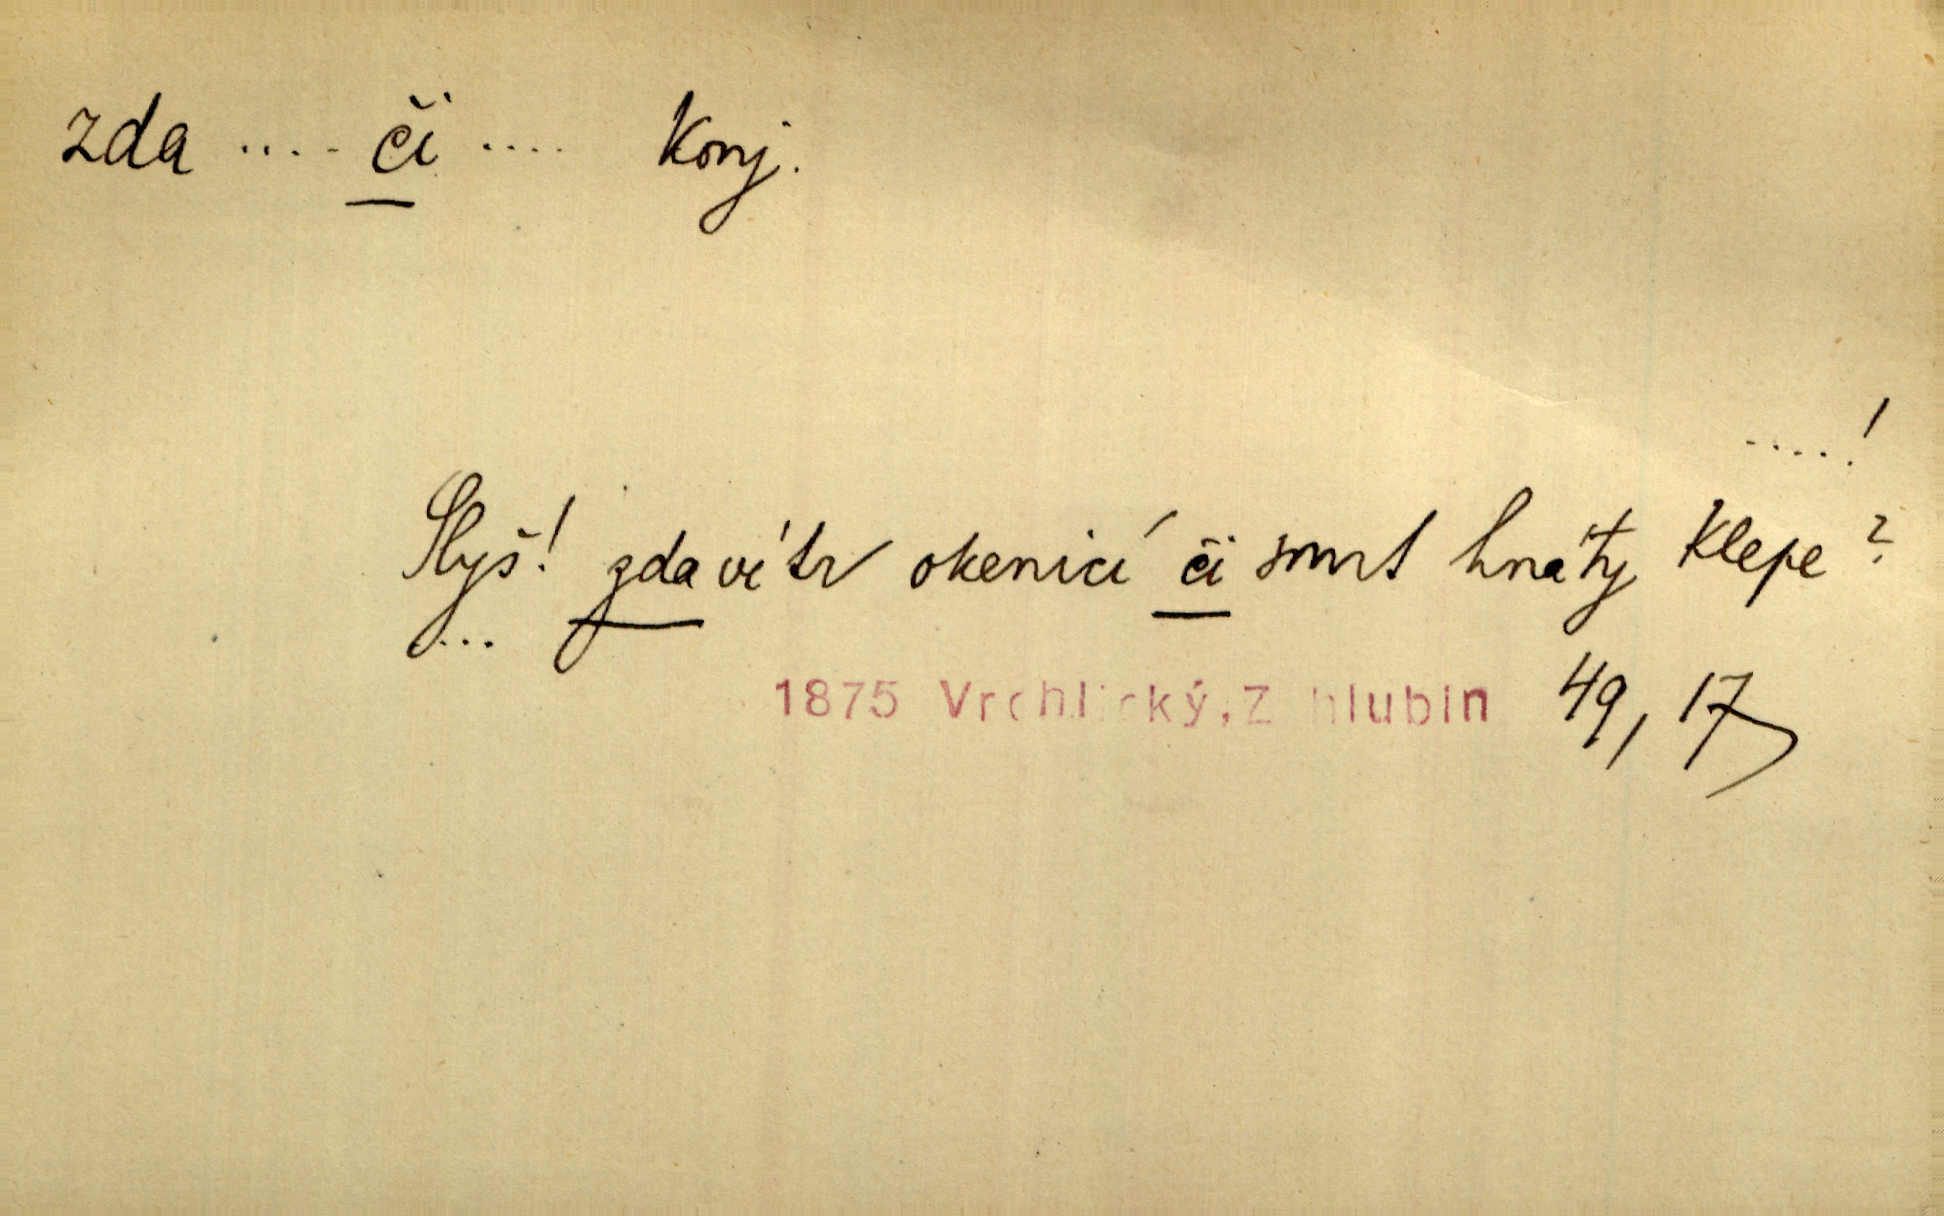 zda ..... či .... Konj.
.....!
Slyš! zda vítr okenicí či smrt hnáty klepe?
...
1875 Vrchlický, Z hlubin 49, 17